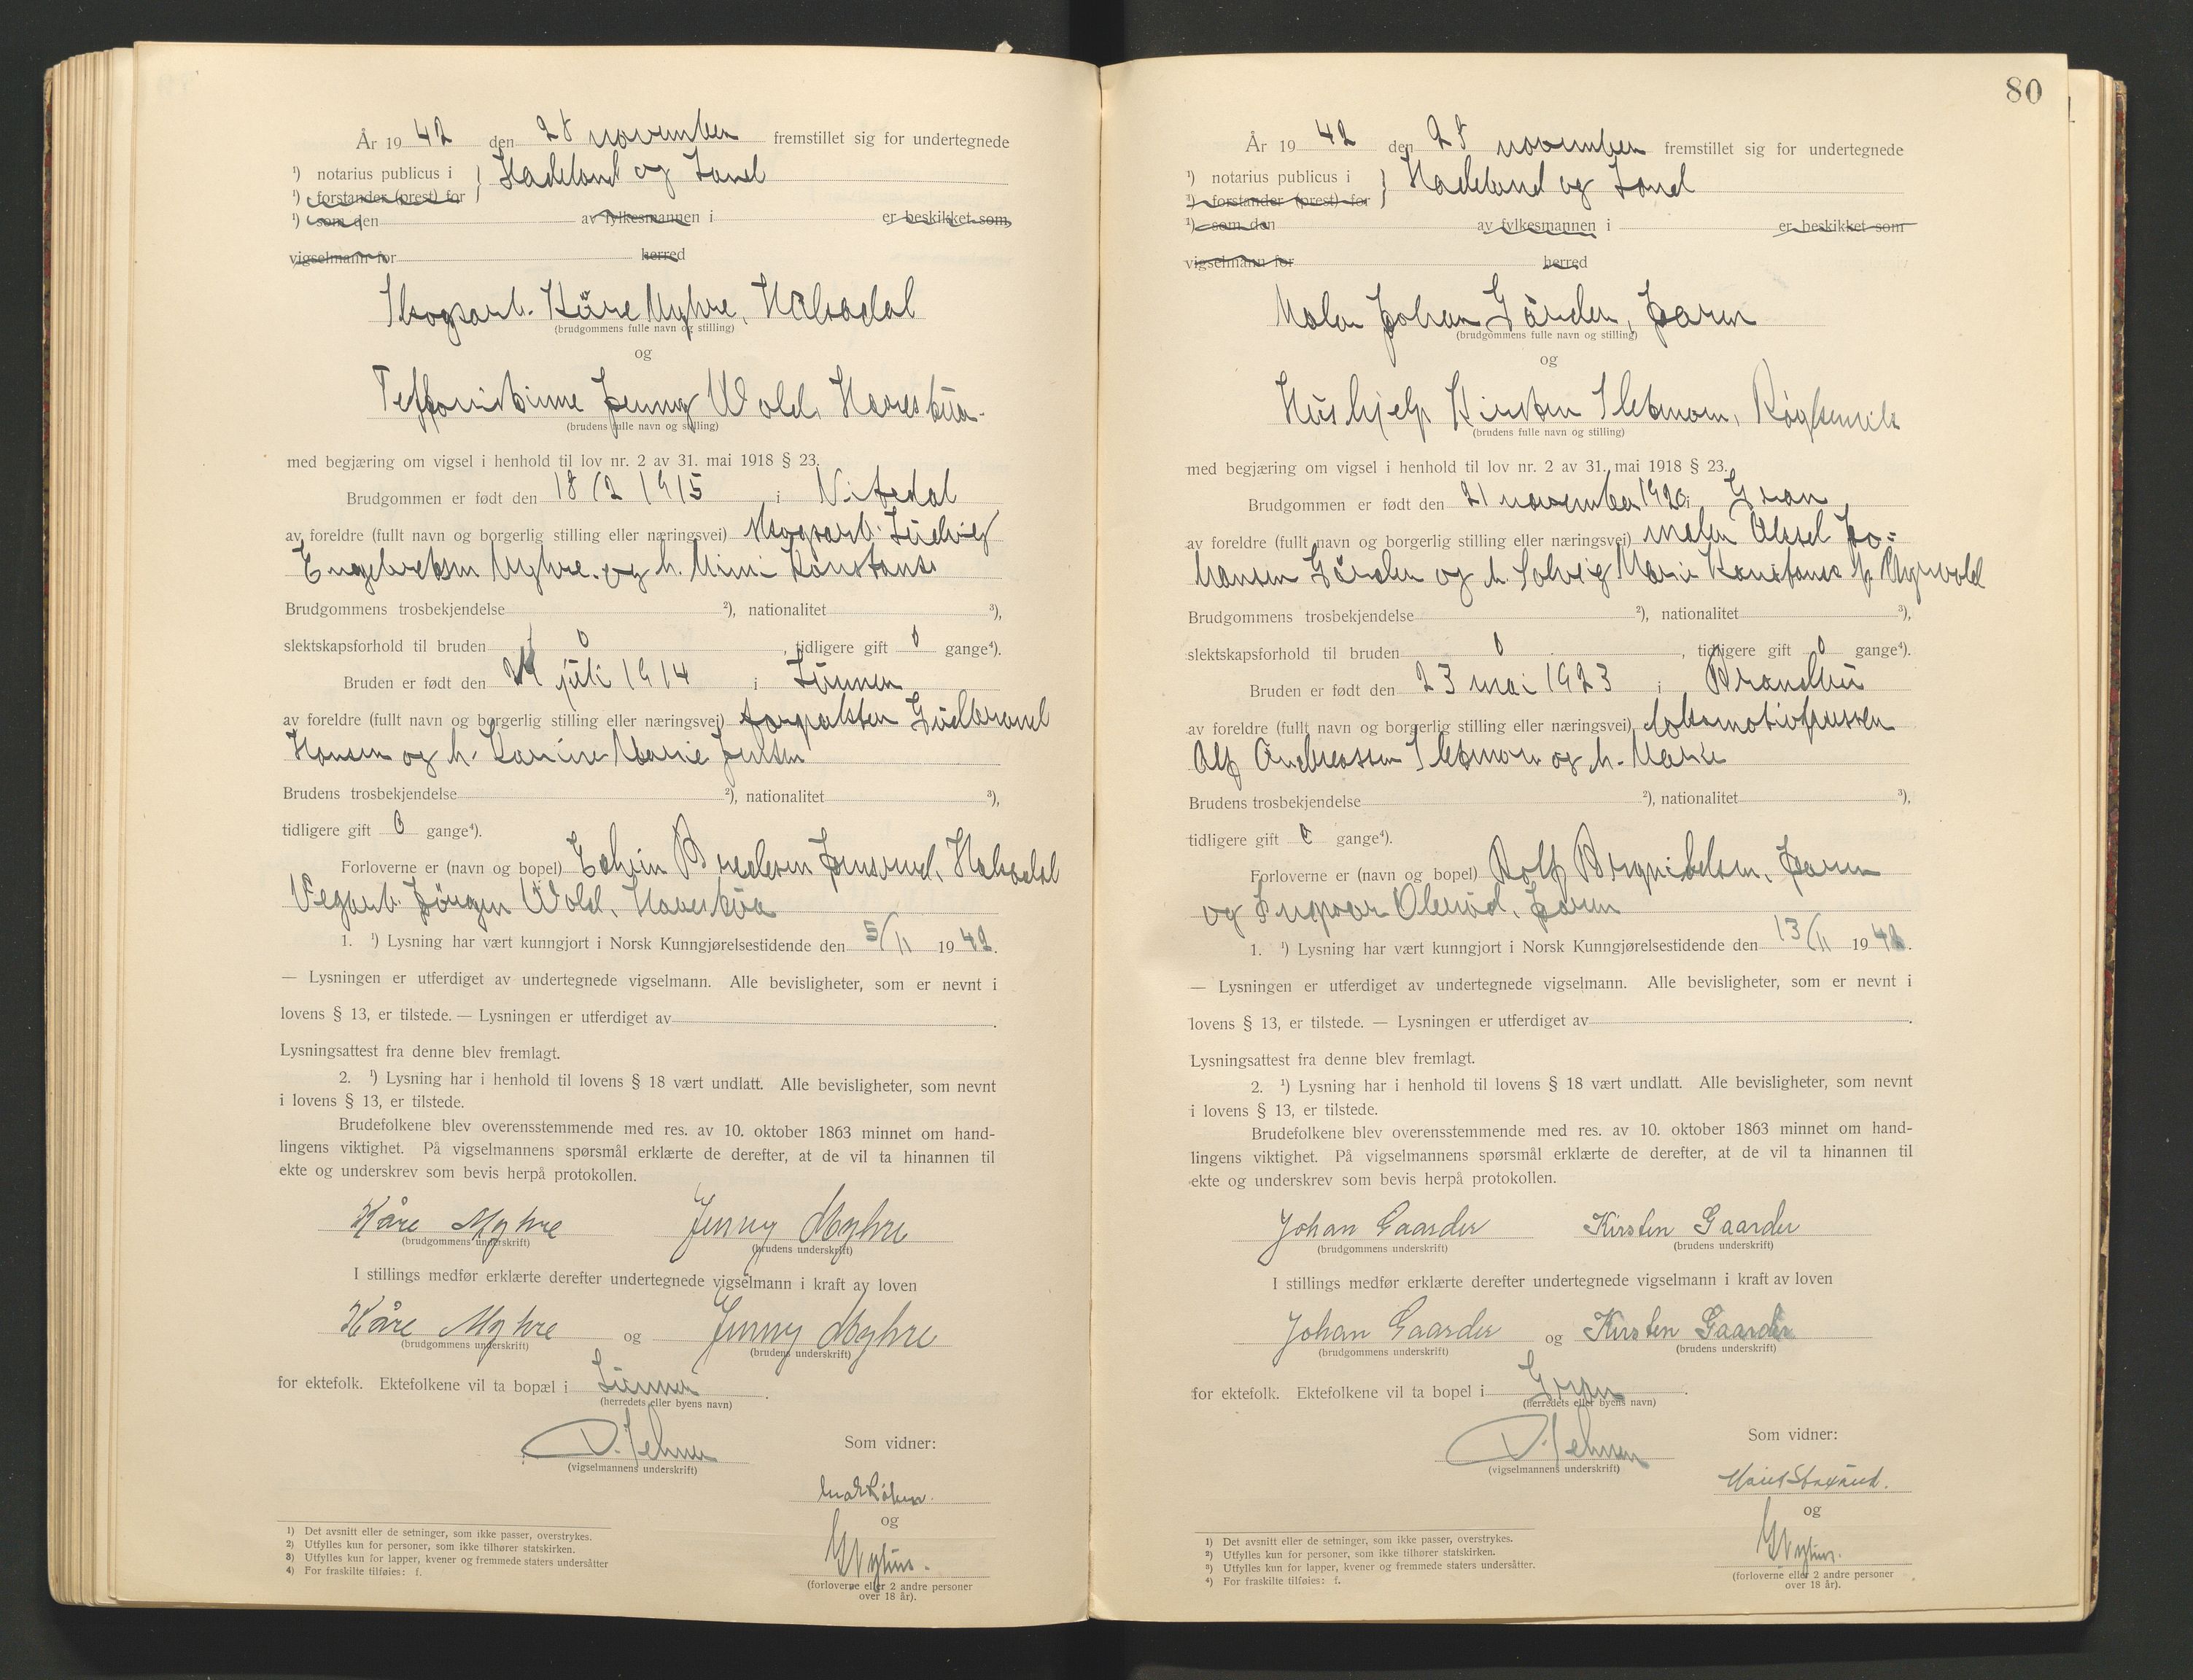 År 1942 den 28 november fremstillet sig for undertegnede
¹) notarius publicus i } Hadeland og Land
¹) forstander (prest) for
¹) som den av fylkesmannen i er beskikket som
vigselmann for herred
Skogsarb. Kåre Myhre, Hakadal
(brudgommens fulle navn og stilling)
og
Jenny Wold, Harestua
(brudens fulle navn og stilling)
med begjæring om vigsel i henhold til lov nr. 2 av 31. mai 1918 § 23.
Brudgommen er født den 18/2 1915 i Nitedal
av foreldre (fullt navn og borgerlig stilling eller næringsvei) skogsarb. Ludvig
Engebretsen Myhre og h. Mimi Konstanse
Brudgommens trosbekjendelse ²), nationalitet ³),
slektskapsforhold til bruden 0, tidligere gift 0 gange⁴).
Bruden er født den 24 juli 1914 i Lunner
av foreldre (fullt navn og borgerlig stilling eller næringsvei) Gudbrand
Hansen og h. Karine Marie Jensen
Brudens trosbekjendelse ²), nationalitet ³),
tidligere gift 0 gange⁴).
Forloverne er (navn og bopel) Edvin Jensrud, Hakadal
Vegarb. Jørgen Wold, Harestua
1. ¹) Lysning har vært kunngjort i Norsk Kunngjørelsestidende den 5/11 1942.
— Lysningen er utferdiget av undertegnede vigselmann. Alle bevisligheter, som er nevnt i
lovens § 13, er tilstede. — Lysningen er utferdiget av .
Lysningsattest fra denne blev fremlagt.
2. ¹) Lysning har i henhold til lovens § 18 vært undlatt. Alle bevisligheter, som nevnt
i lovens § 13, er tilstede.
Brudefolkene blev overensstemmende med res. av 10. oktober 1863 minnet om hand-
lingens viktighet. På vigselmannens spørsmål erklærte de derefter, at de vil ta hinannen til
ekte og underskrev som bevis herpå protokollen.
Kåre Myhre Jenny Myhre
(brudgommens underskrift) (brudens underskrift)
I stillings medfør erklærte derefter undertegnede vigselmann i kraft av loven
Kåre Myhre og Jenny Myhre
(brudgommens underskrift) (brudens underskrift)
for ektefolk. Ektefolkene vil ta bopæl i Lunner.
(herredets eller byens navn)
(vigselmannens underskrift)
Som vidner:
og
(forloverne eller 2 andre personer
over 18 år).
¹) Det avsnitt eller de setninger, som ikke passer, overstrykes.
²) Utfylles kun for personer, som ikke tilhører statskirken.
³) Utfylles kun for lapper, kvener og fremmede staters undersåtter
⁴) For fraskilte tilføies: f.
80
År 1942 den 28 november fremstillet sig for undertegnede
¹) notarius publicus i } Hadeland og Land
¹) forstander (prest) for
¹) som den av fylkesmannen i er beskikket som
vigselmann for herred
Maler Johan Gårder, Jaren
(brudgommens fulle navn og stilling)
og
Hushjelp Kirsten Sletmoen, Røykenvik
(brudens fulle navn og stilling)
med begjæring om vigsel i henhold til lov nr. 2 av 31. mai 1918 § 23.
Brudgommen er født den 21 november 1920 i Gran
av foreldre (fullt navn og borgerlig stilling eller næringsvei) maler Aksel Jo-
hansen Gårder og h. Solveig Marie Konstanse f. Myrvold
Brudgommens trosbekjendelse ²), nationalitet ³),
slektskapsforhold til bruden 0, tidligere gift 0 gange⁴).
Bruden er født den 23 mai 1923 i Brandbu
av foreldre (fullt navn og borgerlig stilling eller næringsvei) lokomotivpusser
Alf Andreassen Sletmoen og h. Marie
Brudens trosbekjendelse ²), nationalitet ³),
tidligere gift 0 gange⁴).
Forloverne er (navn og bopel) Rolf Jaren
og Ingvar Olerud, Jaren
1. ¹) Lysning har vært kunngjort i Norsk Kunngjørelsestidende den 13/11 1942.
— Lysningen er utferdiget av undertegnede vigselmann. Alle bevisligheter, som er nevnt i
lovens § 13, er tilstede. — Lysningen er utferdiget av .
Lysningsattest fra denne blev fremlagt.
2. ¹) Lysning har i henhold til lovens § 18 vært undlatt. Alle bevisligheter, som nevnt
i lovens § 13, er tilstede.
Brudefolkene blev overensstemmende med res. av 10. oktober 1863 minnet om hand-
lingens viktighet. På vigselmannens spørsmål erklærte de derefter, at de vil ta hinannen til
ekte og underskrev som bevis herpå protokollen.
Johan Gaarder Kirsten Gaarder
(brudgommens underskrift) (brudens underskrift)
I stillings medfør erklærte derefter undertegnede vigselmann i kraft av loven
Johan Gaarder og Kirsten Gaarder
(brudgommens underskrift) (brudens underskrift)
for ektefolk. Ektefolkene vil ta bopel i Gran.
(herredets eller byens navn)
(vigselmannens underskrift)
Som vidner:
og
(forloverne eller 2 andre personer
over 18 år).
¹) Det avsnitt eller de setninger, som ikke passer, overstrykes.
²) Utfylles kun for personer, som ikke tilhører statskirken.
³) Utfylles kun for lapper, kvener og fremmede staters undersåtter.
⁴) For fraskilte tilføies: f.